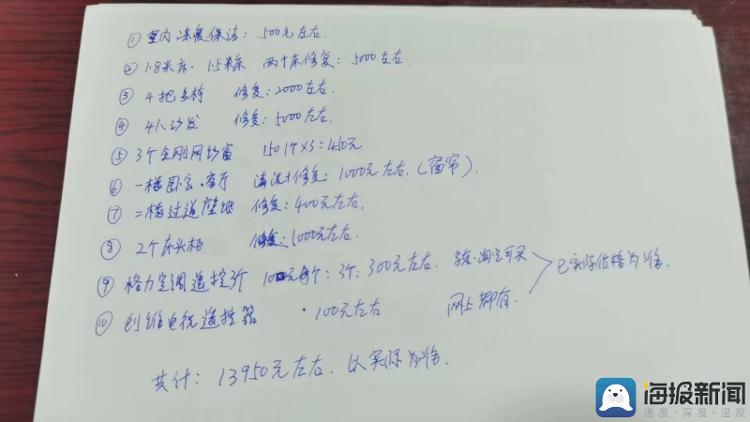 ① 室内深度保洁：500元左右.
② 1.8米床、1.5米床 两个床修复：5000左右.
③ 4把椅 修复：2000左右.
④ 4人沙发 修复：5000左右.
⑤ 3个金刚网纱窗 150个×3=450元
⑥ 一楼卧室、客厅 清洗+修复：1000元左右.（窗帘）.
⑦ 二楼过道壁纸 修复：400元左右.
⑧ 2个床头柜 修复：1000元左右.
⑨ 格力空调遥控3个 100元/个：3个：300元左右. 淘宝可买
⑩ 创维电视遥控器 100元左右 网上都有. 已实际价格为准.
共计：13950元左右. 以实际为准.
海报新闻
速度·深度·温度